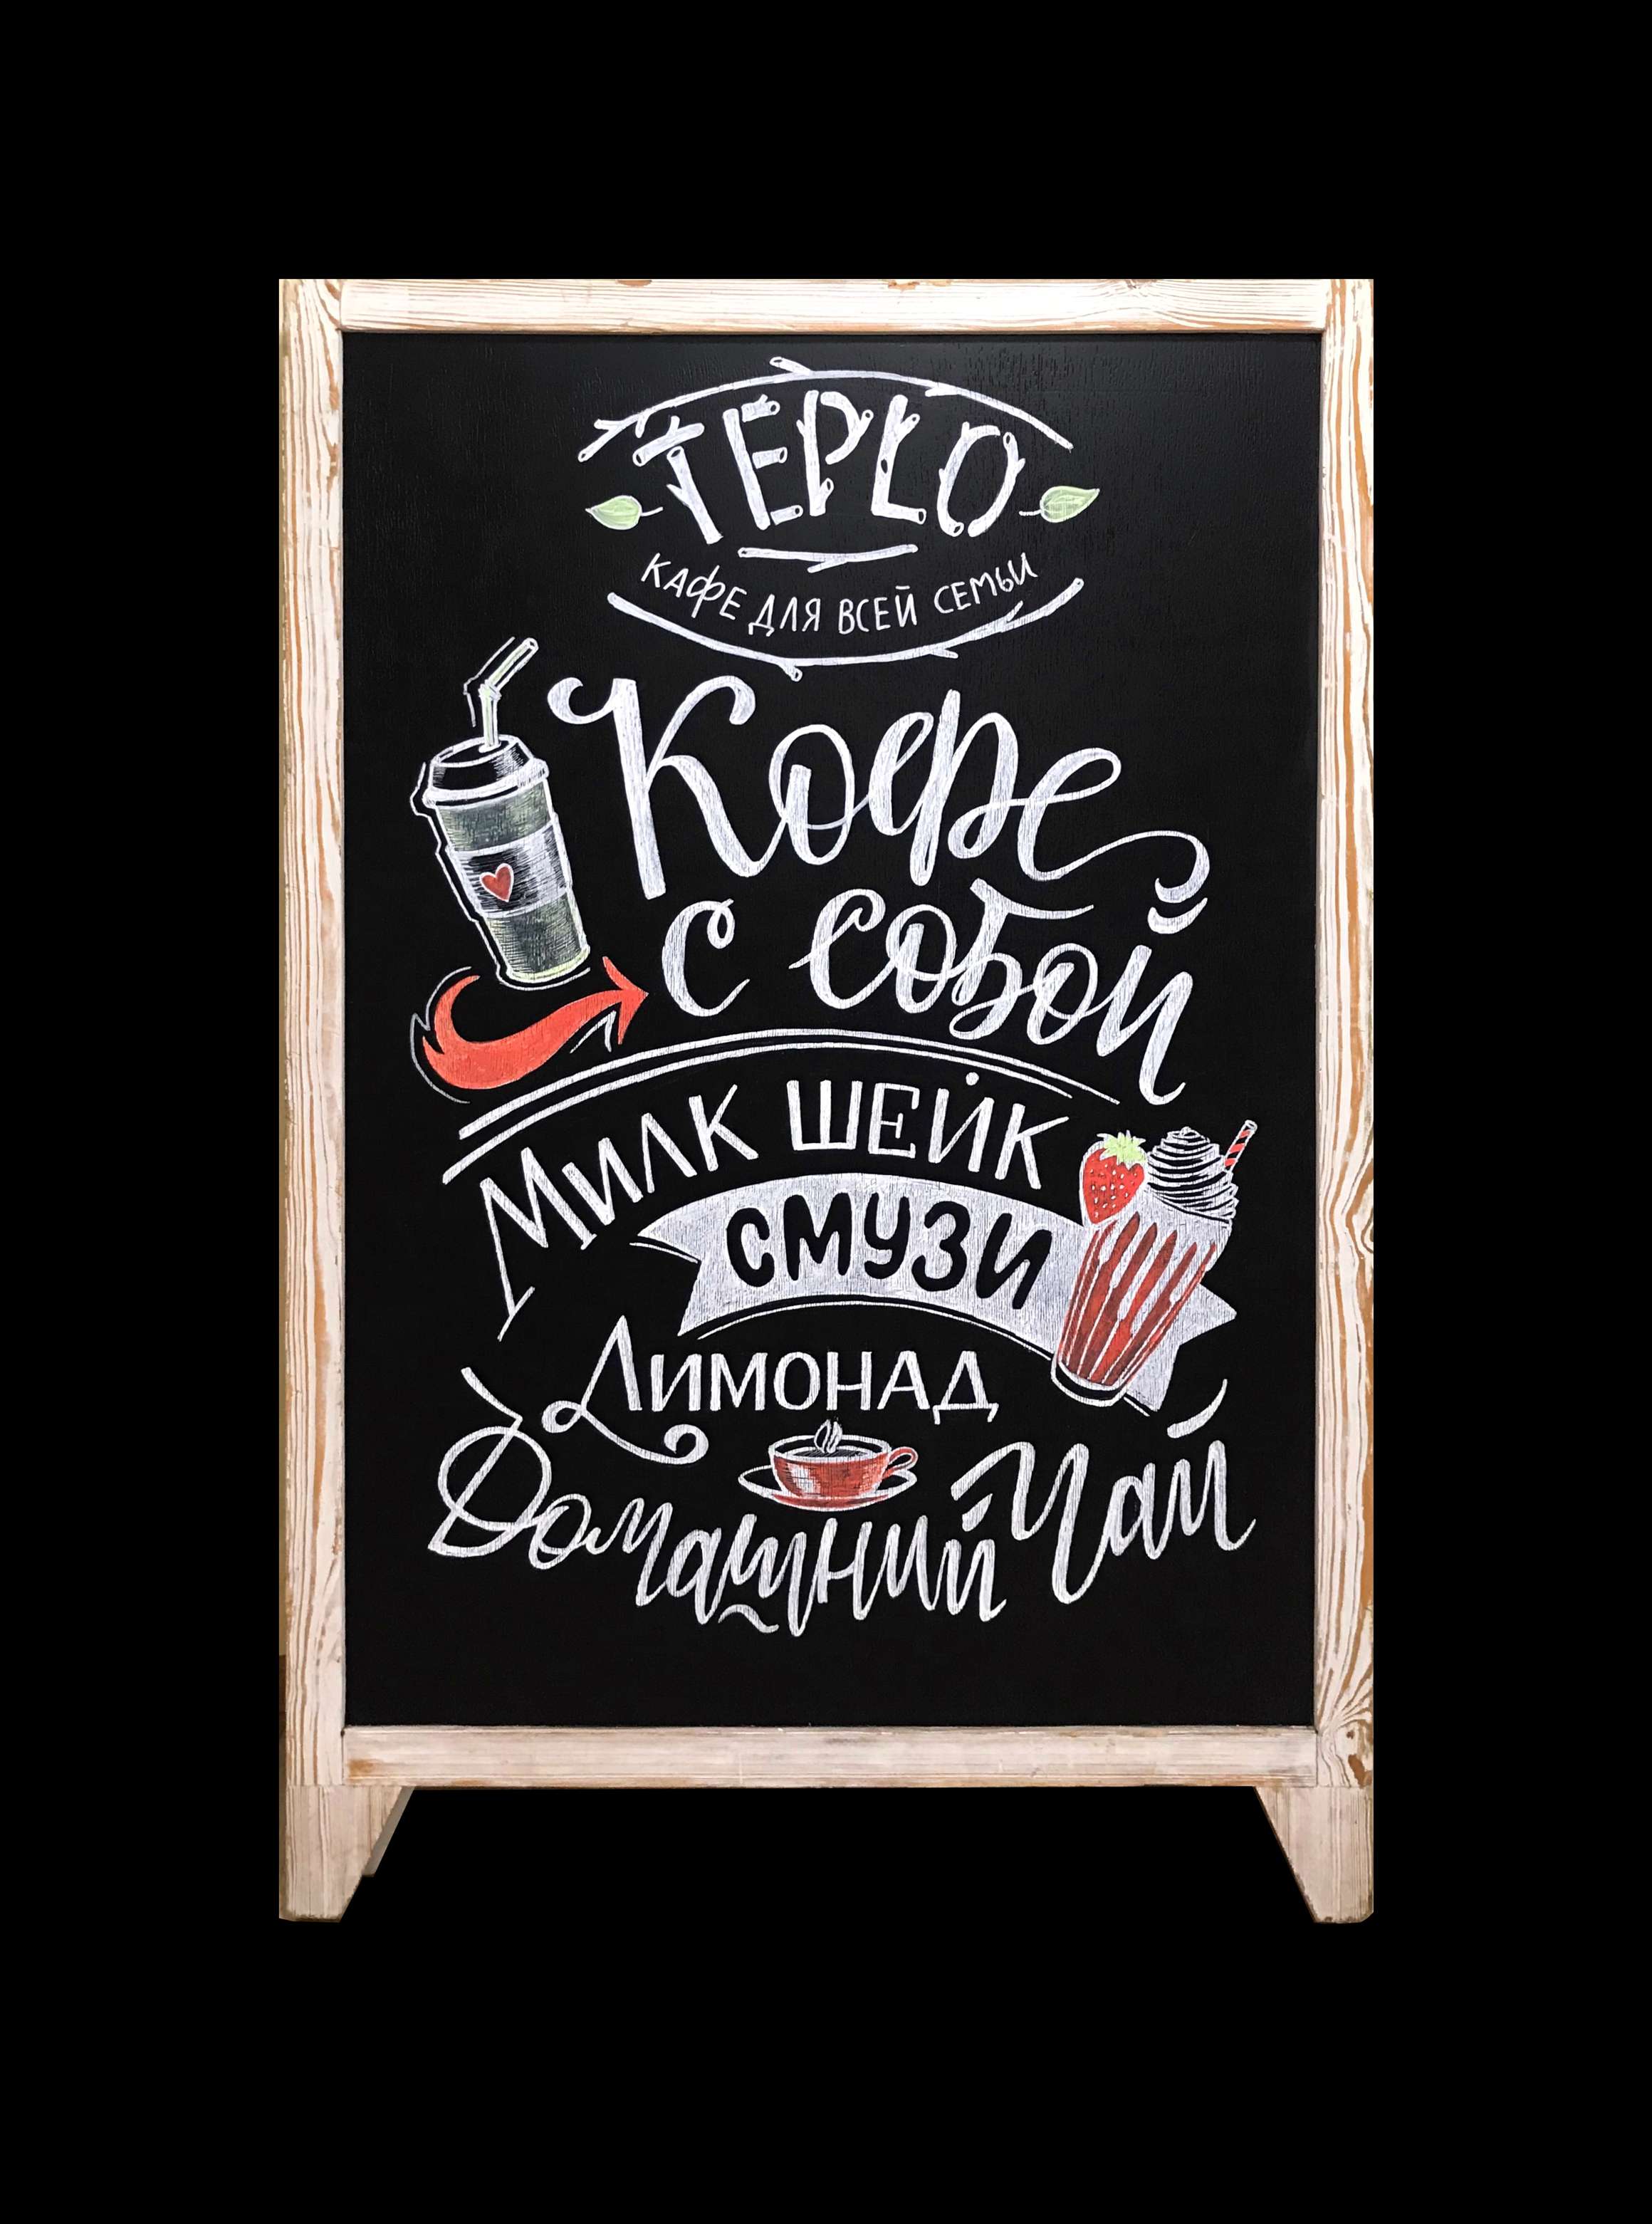 TEPLO
КАФЕ ДЛЯ ВСЕЙ СЕМЬИ
Кофе
с собой
Милк шейк
СМУЗИ
Лимонад
Домашний Чай